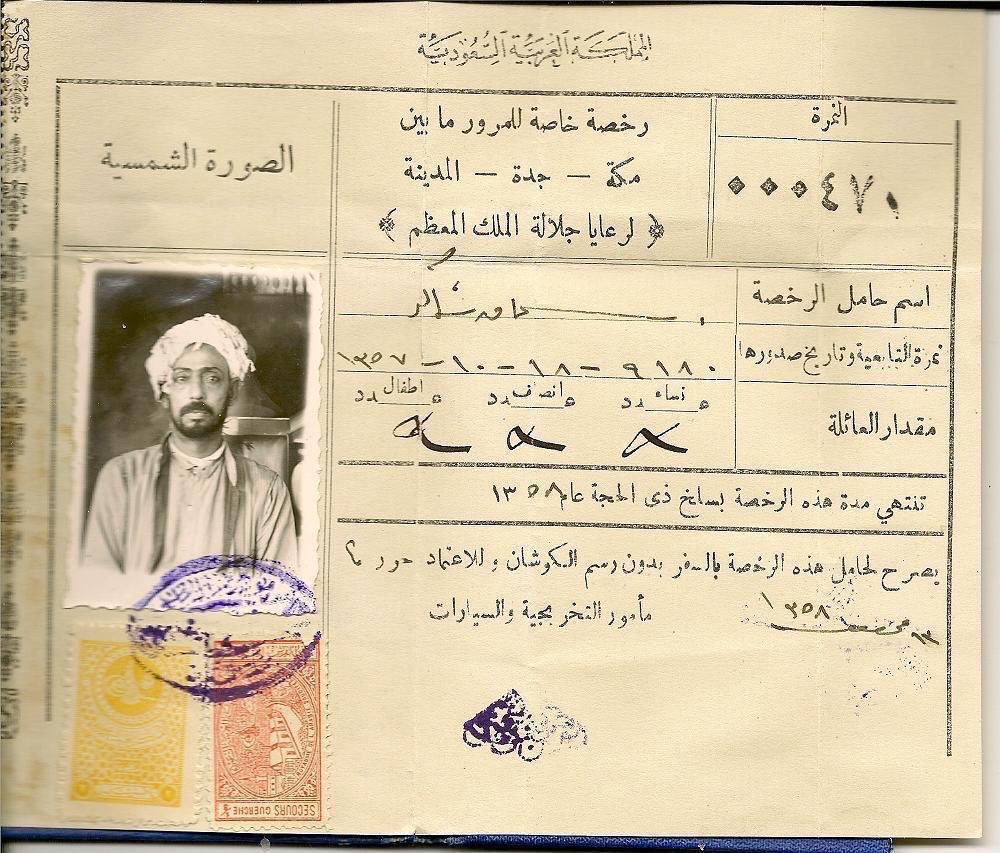 المملكة العربية السعودية
النمرة
٠٠٠٤٧٠
رخصة خاصة للمرور ما بين
مكة — جدة — المدينة
﴿ لرعايا جلالة الملك المعظم ﴾
الصورة الشمسية
اسم حامل الرخصة
نمرة التابعية وتاريخ صدورها
٩١٨٠ – ١٨ – ١٠ – ١٣٥٧
مقدار العائلة
عدد نساء
عدد انصف
عدد اطفال
تنتهي مدة هذه الرخصة بسلخ ذى الحجة عام ١٣٥٨
يصرح لحامل هذه الرخصة بالسفر بدون رسم الكوشان وللاعتماد حرر
١٣٥٨
مأمور التخريجية والسيارات
SECOURS GUERCHE